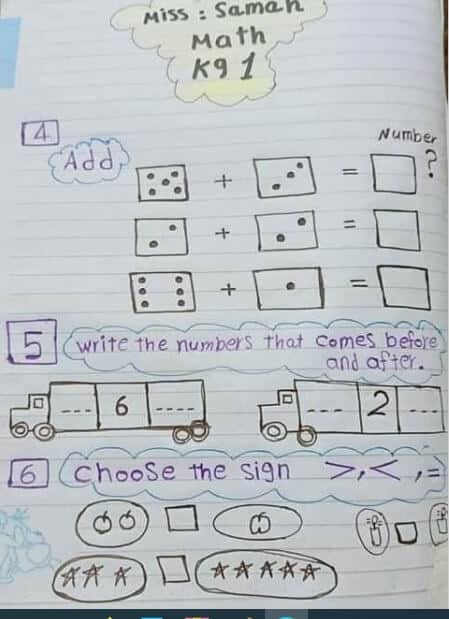 Miss : Samah
Math
Kg 1
4
Number
Add
?
+ =
+ =
+ =
5 write the numbers that comes before
and after.
--- 6 ----
--- 2 ---
6 Choose the sign >,<,=